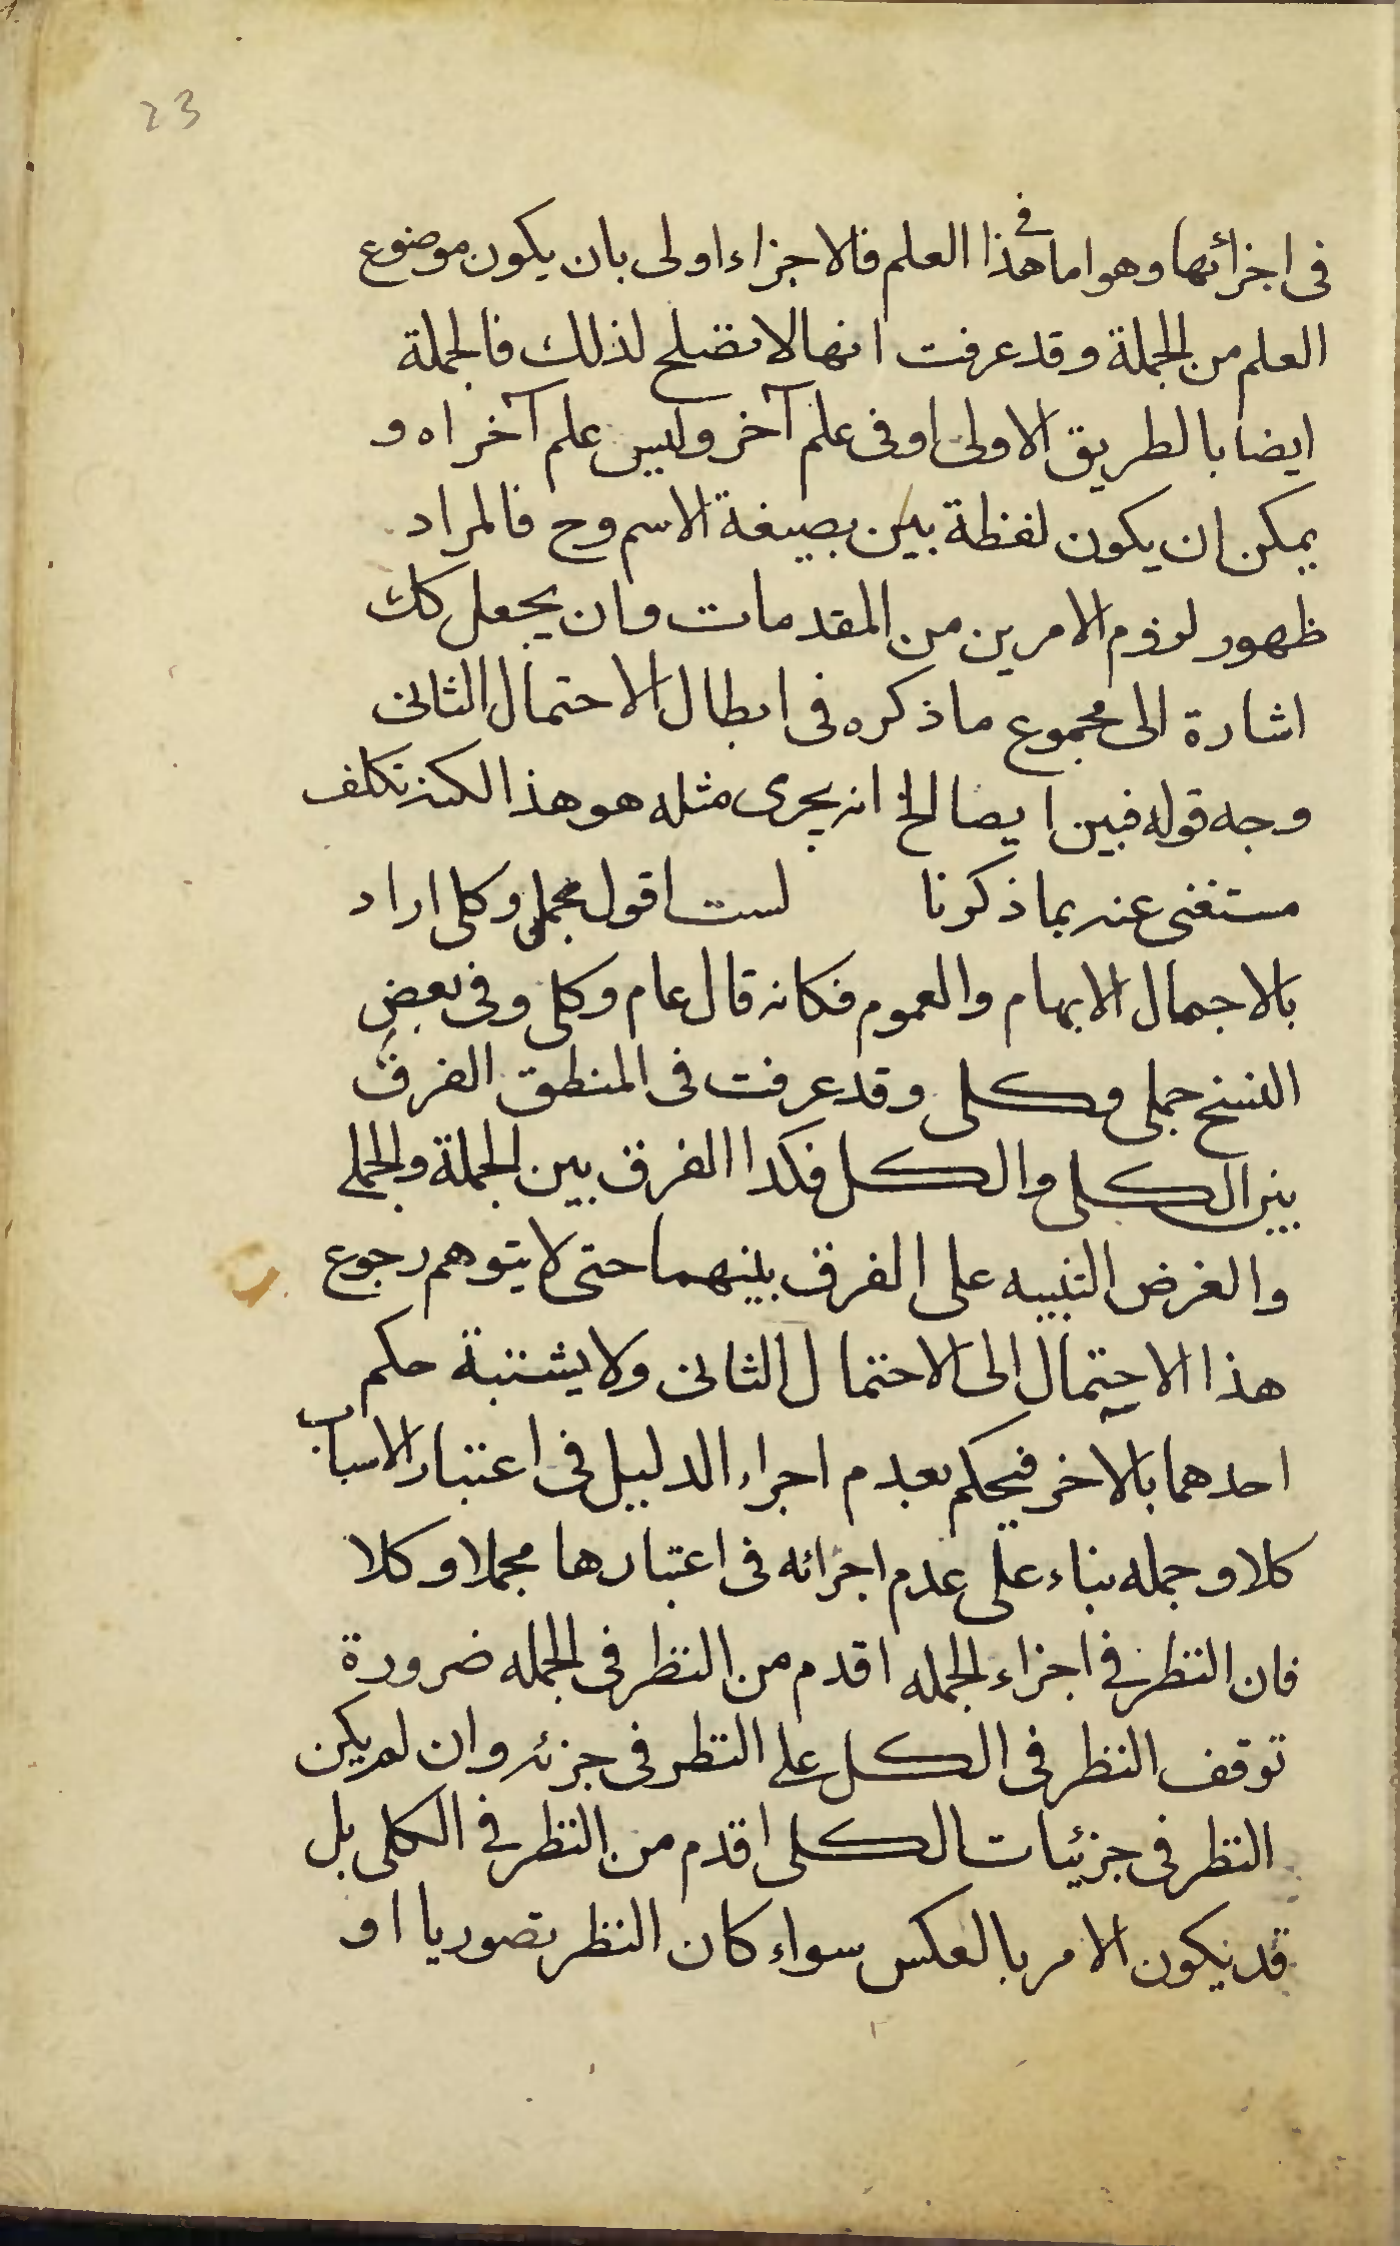 23
في اجزائها وهو اما في هذا العلم فالاجزاء اولى بان يكون موضوع
العلم من الجملة وقد عرفت انها لا تصلح لذلك فالجملة
ايضا بالطريق الاولى او في علم آخر وليس علم آخر اه و
يمكن ان يكون لفظة بين بصيغة الاسم وح فالمراد
ظهور لزوم الامرين من المقدمات وان يجعل كك
اشارة الى مجموع ما ذكره في ابطال الاحتمال الثانى
وجه قوله فبين ايضا الخ انه يجرى مثله هو هذا لكنه تكلف
مستغنى عنه بما ذكرنا لست اقول مجملي وكلى اراد
بالاجمال الابهام والعموم فكانه قال عام وكلى وفي بعض
النسخ جملى وكلى وقد عرفت في المنطق الفرق
بين الكلى والكل فكذا الفرق بين الجملة والجملي
والغرض التنبيه على الفرق بينهما حتى لا يتوهم رجوع
هذا الاحتمال الى الاحتمال الثانى ولا يشتبة حكم
احدهما بالاخر فيحكم بعدم اجراء الدليل في اعتبار الاسباب
كلا وجمله بناء على عدم اجرائه في اعتبارها مجملا وكلا
فان النظر في اجزاء الجمله اقدم من النظر في الجمله ضرورة
توقف النظر في الكل على النظر في جزئه وان لم يكن
النظر في جزئيات الكلى اقدم من النظر في الكلى بل
قد يكون الامر بالعكس سواء كان النظر تصوريا او